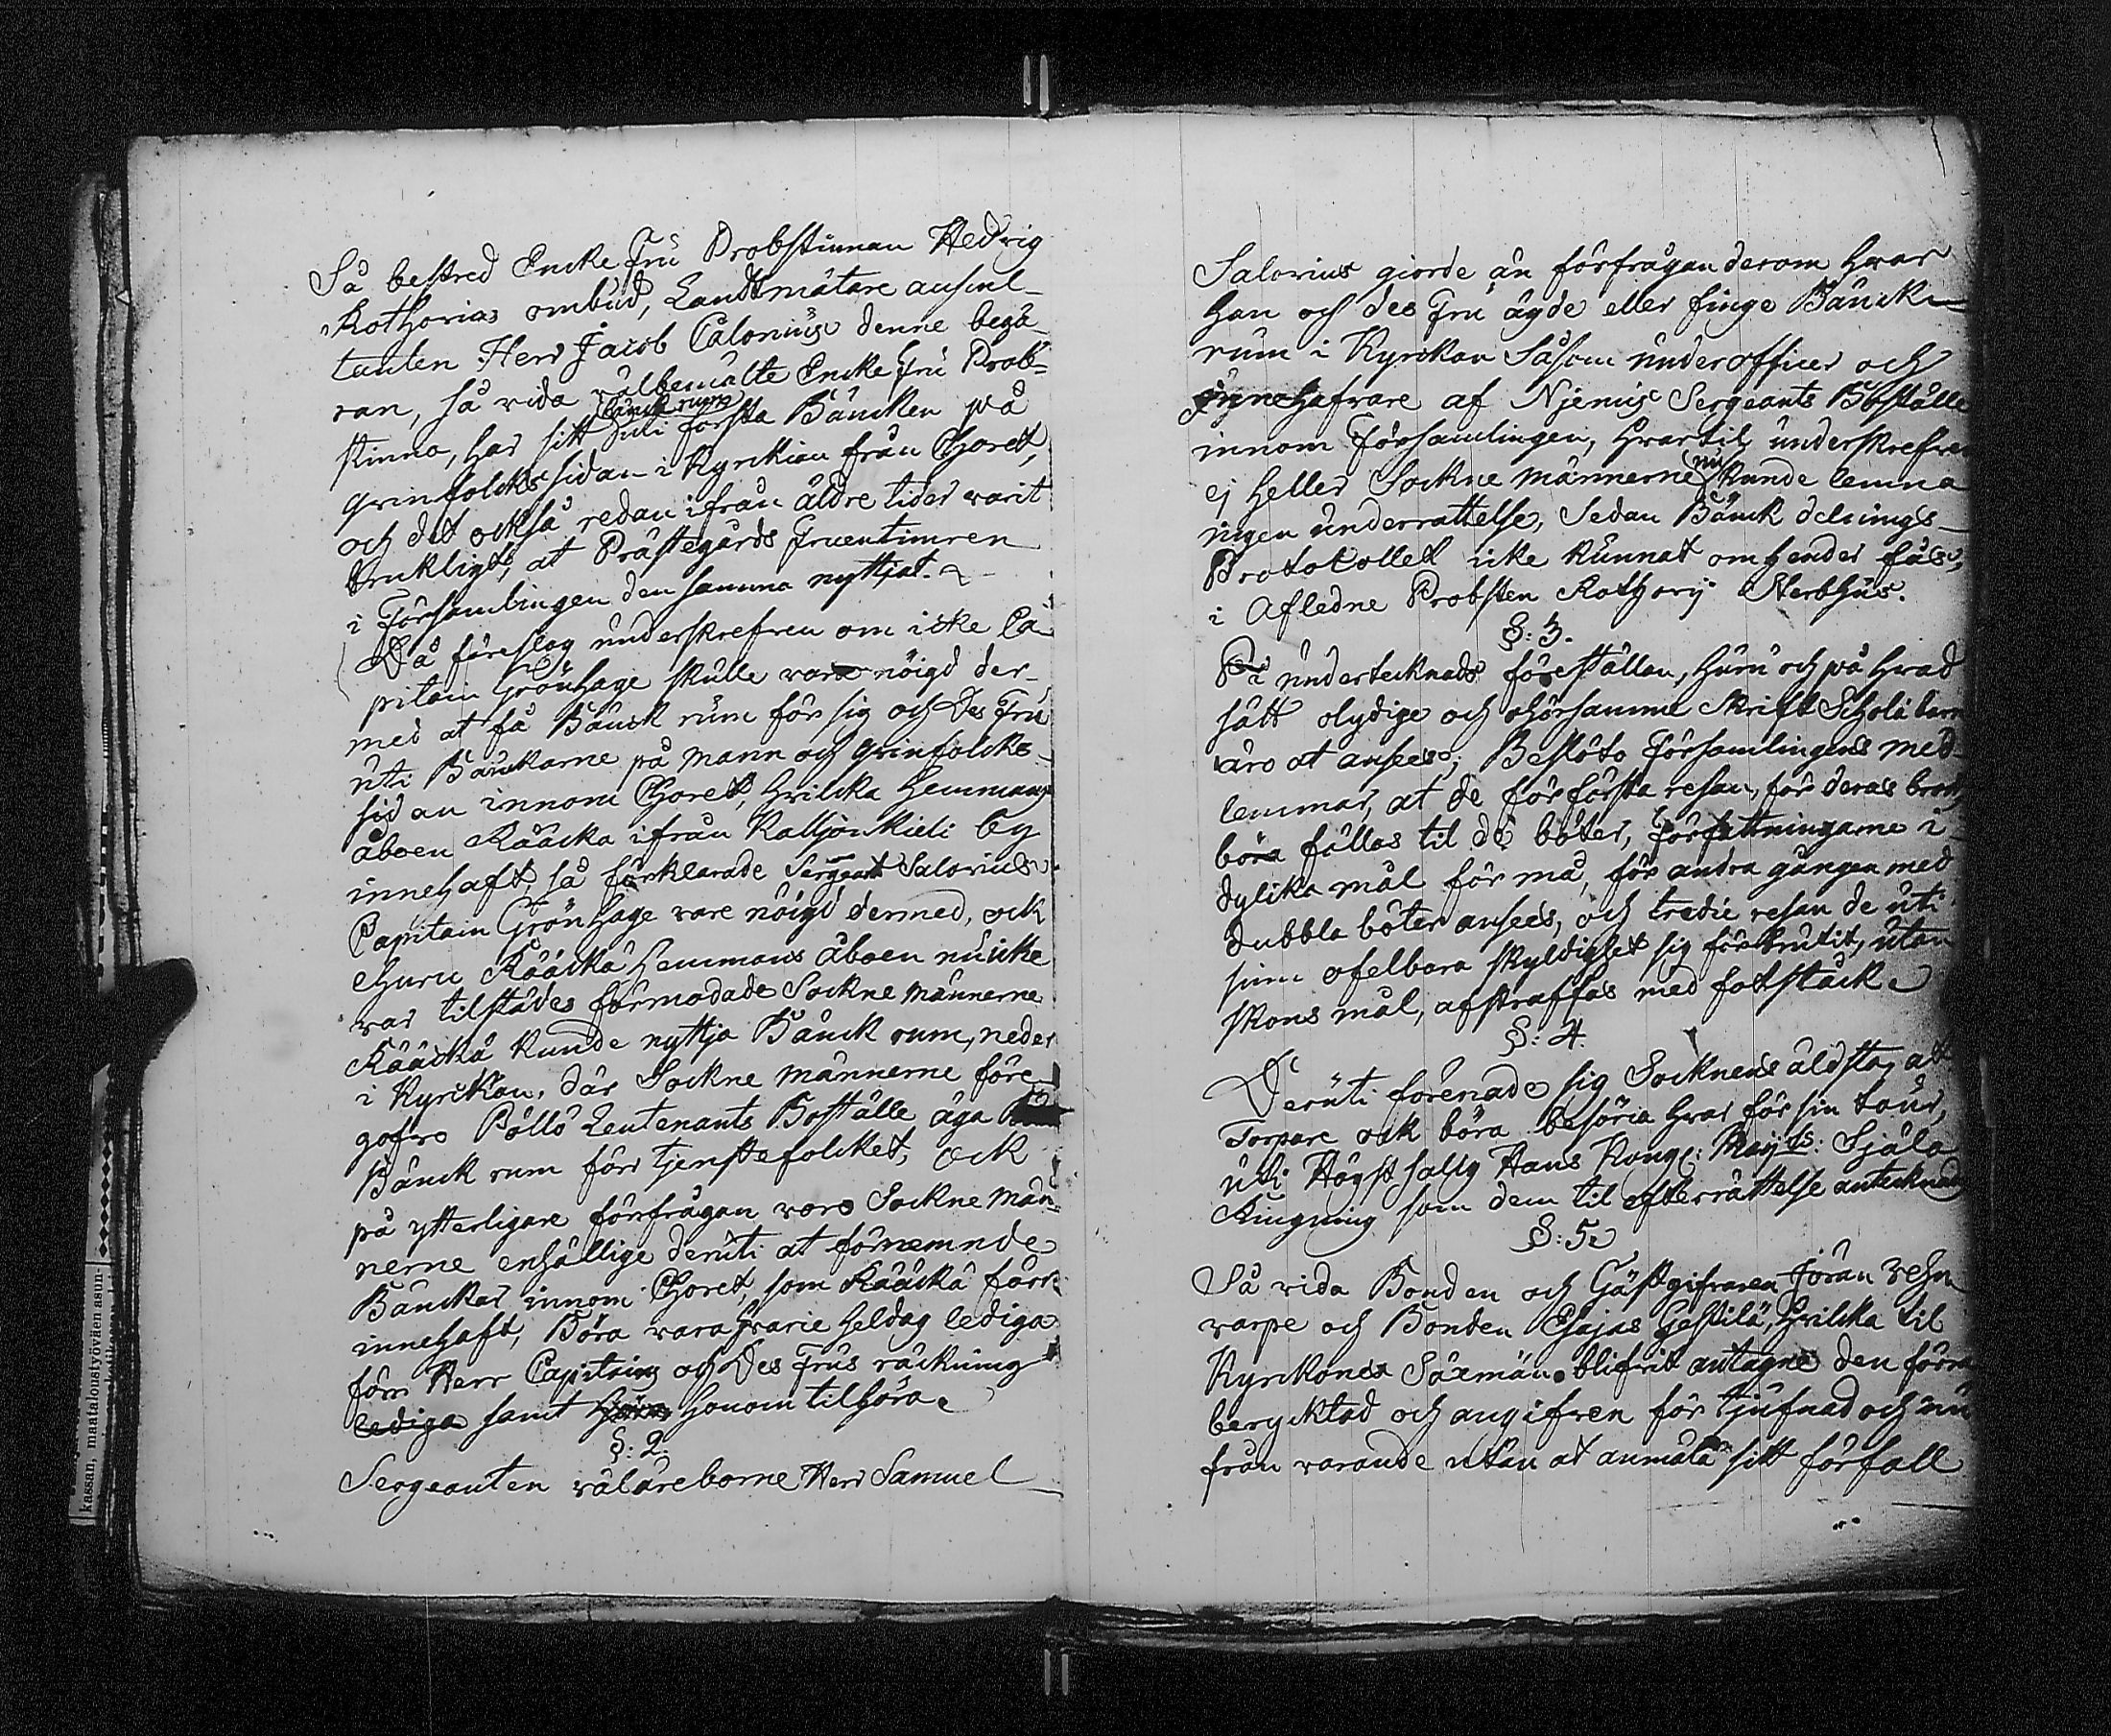 Så bestred Encke Fru Probstinnan Hedvig
Rothovias ombud, Landtmätare auscul-
tanten Herr Jacob Calonius denne begä-
ran, så vida välbemälte Encke Fru Prob-
stinna, har sitt bänck rum uti första Bäncken på
qvinfolcks sidan i Kyrckian från Choret,
och det också redan ifrån äldre tider varit
brukligt, at Prästegårds Fruentimren
i Församlingen den samma nyttjat.
Då föreslog underskrefven om icke Ca-
pitain Grönhage skulle vara nöigd der-
med at få Bänck rum för sig och Des Fru
uti Bänckarne på mann och qvinfolcks-
sidan innom Choret, hvilcka Hemmans
åboen Rääckä ifrån Kalljonkieli by
innehaft, så förklarade Sergeant Salovius
Capitain Grönhage vare nöigd dermed, ock
ehuru Rääckä Hemmans åboen nu icke
var tilstädes förmodade Sockne männerne
Rääckä kunde nyttja Bänck rum, neder
i Kyrckan, där Sockne männerne före-
gofvo Pöllö Leutenants Boställe äga
Bänck rum för tjenstefolcket, ock
på ytterligare förfrågan voro Sockne män-
nerne enhällige deruti at förnemnde
Bänckar innom Choret, som Rääckä förr
innehaft, Böra vara hvarie heldag lediga
för Herr Capitains och Des Frus räckning
lediga samt honom tilhöra.
§: 2.
Sergeanten välärebörne Herr Samuel
Salovius giorde än förfrågan derom hvar
han och des Fru ägde eller finge Bänck-
rum i Kyrckan Såsom underofficer och
innehafvare af Njemis Sergeants Boställe
innom Församlingen, hvartil underskrefven
ej heller Sockne männerne nu kunde lemna
ingen underrättelse, Sedan Bänck delnings-
Protocollet icke kunnat om händer fås,
i Afledne Probsten Rothovij Sterbhus.
§: 3.
På undertecknads föreställan, huru och på hvad
sätt olydige och ohörsamme Skrift Schole barn
äro at ansees; Beslöto Församlingens med-
lemmar, at de för första resan, för deras brott
böra fällas til de böter, Författningarne i
dylika mål förmå, för andra gången med
dubbla böter ansees, och tredie resan de uti
sinn ofelbara skyldighet sig förbrutit, utan
skons mål, afstraffas med fotstäck.
§: 4.
Deruti förenade sig Socknens äldsta, att
Torpare ock böra besörja hvar för sin tour,
uti Högst salig Hans Kongl: Maij:ts: Själa
Ringning som dem til efterrättelse antecknades
§: 5.
Så vida Bonden och Gästgifvaren Jöran Vehn
varpe och Bonden Esajas Gestilä, hvilcka til
Kyrckones Säxmän blifvit antagne den förra
beryktad och angifven för tjufnad och nu
från varande utan at anmäla sitt förfall